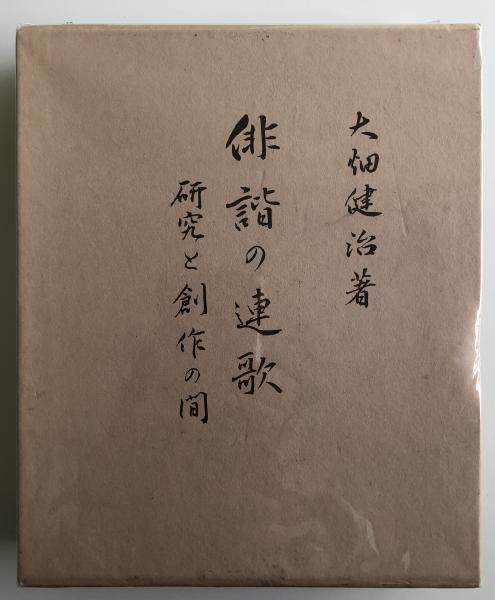 大畑健治著
俳諧の連歌
研究と創作の間